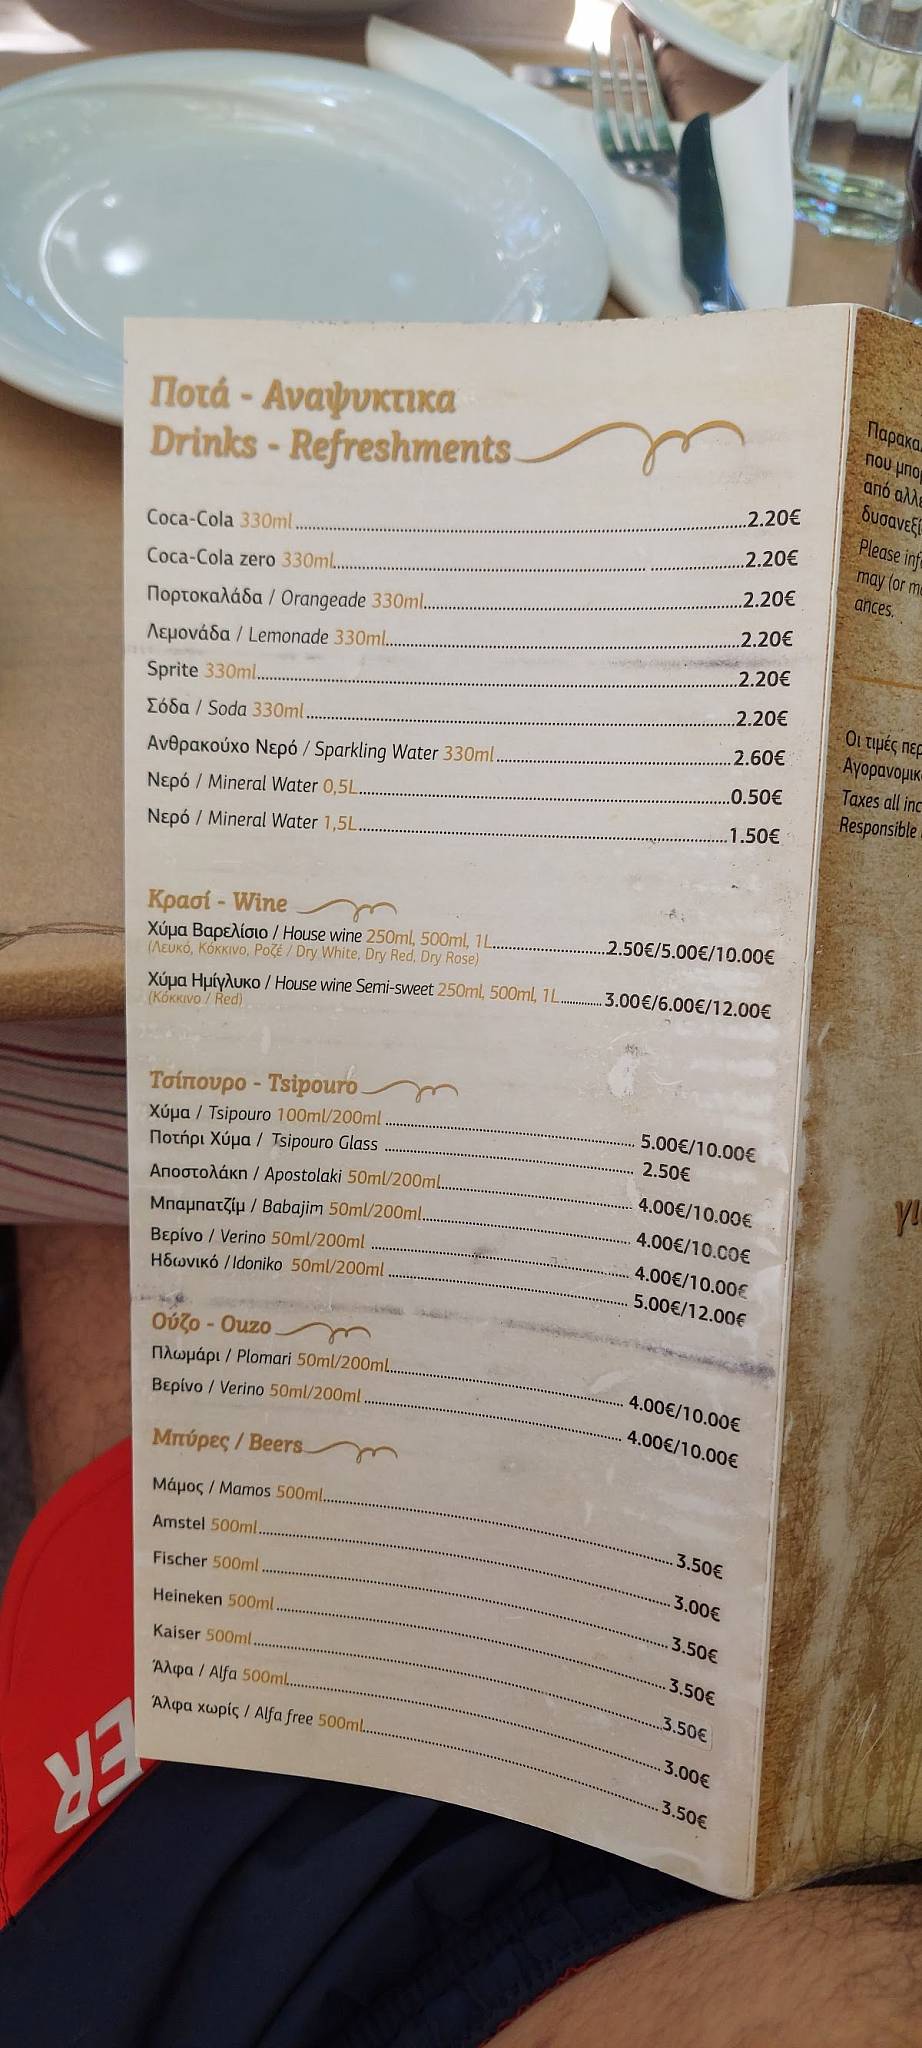 Ποτά - Αναψυκτικα
Drinks - Refreshments
Coca-Cola 330ml 2.20€
Coca-Cola zero 330ml 2.20€
Πορτοκαλάδα / Orangeade 330ml 2.20€
Λεμονάδα / Lemonade 330ml 2.20€
Sprite 330ml 2.20€
Σόδα / Soda 330ml 2.20€
Ανθρακούχο Νερό / Sparkling Water 330ml 2.60€
Νερό / Mineral Water 0,5L 0.50€
Νερό / Mineral Water 1,5L 1.50€
Κρασί - Wine
Χύμα Βαρελίσιο / House wine 250ml, 500ml, 1L 2.50€/5.00€/10.00€
(Λευκό, Κόκκινο, Ροζέ / Dry White, Dry Red, Dry Rose)
Χύμα Ημίγλυκο / House wine Semi-sweet 250ml, 500ml, 1L 3.00€/6.00€/12.00€
(Κόκκινο / Red)
Τσίπουρο - Tsipouro
Χύμα / Tsipouro 100ml/200ml 5.00€/10.00€
Ποτήρι Χύμα / Tsipouro Glass 2.50€
Αποστολάκη / Apostolaki 50ml/200ml 4.00€/10.00€
Μπαμπατζίμ / Babajim 50ml/200ml 4.00€/10.00€
Βερίνο / Verino 50ml/200ml 4.00€/10.00€
Ηδωνικό /Idoniko 50ml/200ml 5.00€/12.00€
Ούζο - Ouzo
Πλωμάρι / Plomari 50ml/200ml 4.00€/10.00€
Βερίνο / Verino 50ml/200ml 4.00€/10.00€
Μπύρες / Beers
Μάμος / Mamos 500ml 3.50€
Amstel 500ml 3.00€
Fischer 500ml 3.50€
Heineken 500ml 3.50€
Kaiser 500ml 3.50€
Άλφα / Alfa 500ml 3.00€
Άλφα χωρίς / Alfa free 500ml 3.50€
που
από
Please
may (or
ances.
Οι τιμές
Taxes all
Responsible